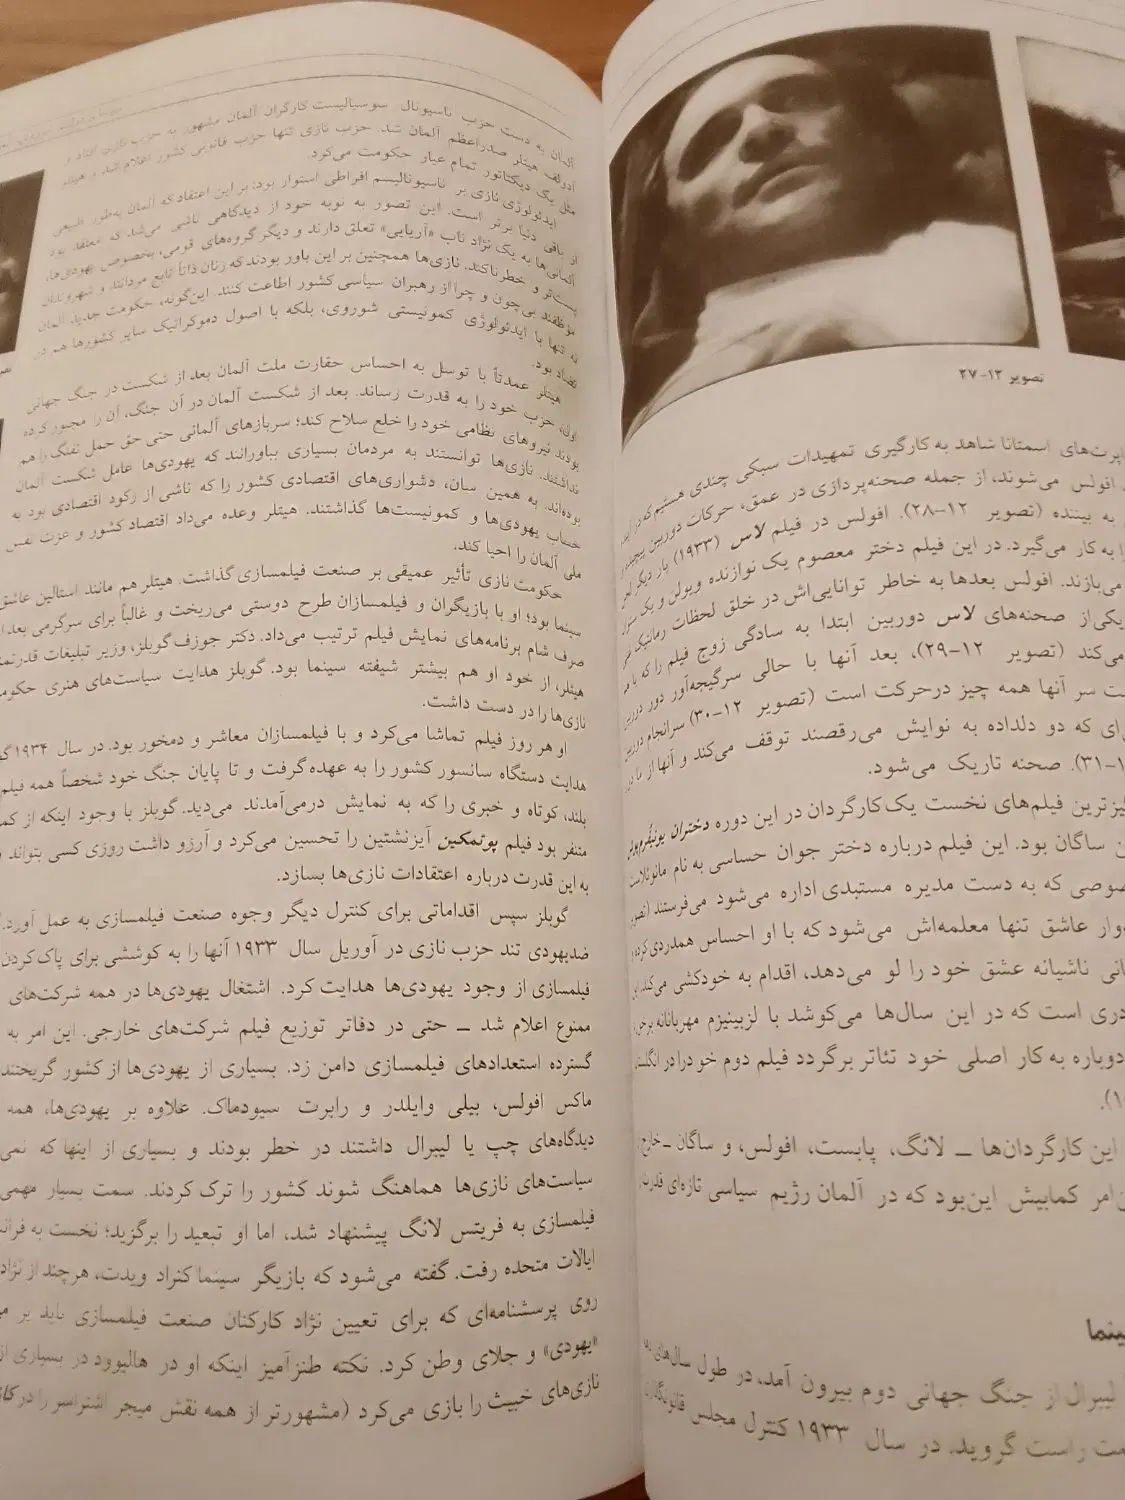 تصویر ۱۲-۲۷
اپرت‌های اسمتانا شاهد به کارگیری تمهیدات سبکی چندی هستیم که در
افولس می‌شوند، از جمله صحنه‌پردازی در عمق، حرکات دوربین پیچیده
به بیننده (تصویر ۱۲-۲۸). افولس در فیلم لاس (۱۹۳۳) بار دیگر
را به کار می‌گیرد. در این فیلم دختر معصوم یک نوازنده ویولن و یک
می‌بازند. افولس بعدها به خاطر توانایی‌اش در خلق لحظات رمانتیک
یکی از صحنه‌های لاس دوربین ابتدا به سادگی زوج فیلم را که با هم
می‌کند (تصویر ۱۲-۲۹)، بعد آنها با حالی سرگیجه‌آور دور
ت سر آنها همه چیز درحرکت است (تصویر ۱۲-۳۰) سرانجام دوربین
ای که دو دلداده به نوایش می‌رقصند توقف می‌کند و آنها از ما
۳۱-۱). صحنه تاریک می‌شود.
گیزترین فیلم‌های نخست یک کارگردان در این دوره دختران یونیفرم‌پوش
ن ساگان بود. این فیلم درباره دختر جوان حساسی به نام مانوئلاست
صوصی که به دست مدیره مستبدی اداره می‌شود می‌فرستند
وار عاشق تنها معلمه‌اش می‌شود که با او احساس همدردی کرده و
انی ناشیانه عشق خود را لو می‌دهد، اقدام به خودکشی می‌کند.
دری است که در این سال‌ها می‌کوشد با لزبینیزم مهربانانه
دوباره به کار اصلی خود تئاتر برگردد فیلم دوم خود را در
۱).
این کارگردان‌ها ــ لانگ، پابست، افولس، و ساگان ــ خارج
ن امر کمابیش این‌بود که در آلمان رژیم سیاسی تازه‌ای
ینما
لیبرال از جنگ جهانی دوم بیرون آمد، در طول سال‌های
ت راست گروید. در سال ۱۹۳۳ کنترل مجلس
آلمان به دست حزب ناسیونال سوسیالیست کارگران آلمان مشهور به حزب نازی افتاد و
آدولف هیتلر صدراعظم آلمان شد. حزب نازی تنها حزب قانونی کشور اعلام شد و هیتلر
مثل یک دیکتاتور تمام عیار حکومت می‌کرد.
ایدئولوژی نازی بر ناسیونالیسم افراطی استوار بود: بر این اعتقاد که آلمان به‌طور طبیعی
از باقی دنیا برتر است. این تصور به نوبه خود از دیدگاهی ناشی می‌شد که معتقد بود
آلمانی‌ها به یک نژاد ناب «آریایی» تعلق دارند و دیگر گروه‌های قومی، بخصوص یهودی‌ها،
پست‌تر و خطرناکند. نازی‌ها همچنین بر این باور بودند که زنان ذاتاً تابع مردانند و شهروندان
موظفند بی‌چون و چرا از رهبران سیاسی کشور اطاعت کنند. این‌گونه، حکومت جدید آلمان
نه تنها با ایدئولوژی کمونیستی شوروی، بلکه با اصول دموکراتیک سایر کشورها هم در
تضاد بود.
هیتلر عمدتاً با توسل به احساس حقارت ملت آلمان بعد از شکست در جنگ جهانی
اول، حزب خود را به قدرت رساند. بعد از شکست آلمان در آن جنگ، آن را مجبور کرده
بودند نیروهای نظامی خود را خلع سلاح کند؛ سربازهای آلمانی حتی حق حمل تفنگ را هم
نداشتند. نازی‌ها توانستند به مردمان بسیاری بباورانند که یهودی‌ها عامل شکست آلمان
بوده‌اند. به همین سان، دشواری‌های اقتصادی کشور را که ناشی از رکود اقتصادی بود به
حساب یهودی‌ها و کمونیست‌ها گذاشتند. هیتلر وعده می‌داد اقتصاد کشور و عزت نفس
ملی آلمان را احیا کند.
حکومت نازی تأثیر عمیقی بر صنعت فیلمسازی گذاشت. هیتلر هم مانند استالین عاشق
سینما بود؛ او با بازیگران و فیلمسازان طرح دوستی می‌ریخت و غالباً برای سرگرمی بعد از
صرف شام برنامه‌های نمایش فیلم ترتیب می‌داد. دکتر جوزف گوبلز، وزیر تبلیغات قدرتمند
هیتلر، از خود او هم بیشتر شیفته سینما بود. گوبلز هدایت سیاست‌های هنری حکومت
نازی‌ها را در دست داشت.
او هر روز فیلم تماشا می‌کرد و با فیلمسازان معاشر و دمخور بود. در سال ۱۹۳۴
هدایت دستگاه سانسور کشور را به عهده گرفت و تا پایان جنگ خود شخصاً همه فیلم
بلند، کوتاه و خبری را که به نمایش درمی‌آمدند می‌دید. گوبلز با وجود اینکه از
متنفر بود فیلم پوتمکین آیزنشتین را تحسین می‌کرد و آرزو داشت روزی کسی بتواند
به این قدرت درباره اعتقادات نازی‌ها بسازد.
گوبلز سپس اقداماتی برای کنترل دیگر وجوه صنعت فیلمسازی به عمل آورد.
ضدیهودی تند حزب نازی در آوریل سال ۱۹۳۳ آنها را به کوششی برای پاک کردن
فیلمسازی از وجود یهودی‌ها هدایت کرد. اشتغال یهودی‌ها در همه شرکت‌های
ممنوع اعلام شد ــ حتی در دفاتر توزیع فیلم شرکت‌های خارجی. این امر به
گسترده استعدادهای فیلمسازی دامن زد. بسیاری از یهودی‌ها از کشور گریختند
ماکس افولس، بیلی وایلدر و رابرت سیودماک. علاوه بر یهودی‌ها، همه
دیدگاه‌های چپ یا لیبرال داشتند در خطر بودند و بسیاری از اینها که نمی
سیاست‌های نازی‌ها هماهنگ شوند کشور را ترک کردند. سمت بسیار مهمی
فیلمسازی به فریتس لانگ پیشنهاد شد، اما او تبعید را برگزید؛ نخست به
ایالات متحده رفت. گفته می‌شود که بازیگر سینما کنراد ویدت، هرچند از نژاد
روی پرسشنامه‌ای که برای تعیین نژاد کارکنان صنعت فیلمسازی باید پر
«یهودی» و جلای وطن کرد. نکته طنزآمیز اینکه او در هالیوود در بسیاری از
نازی‌های خبیث را بازی می‌کرد (مشهورتر از همه نقش میجر اشتراسر را در